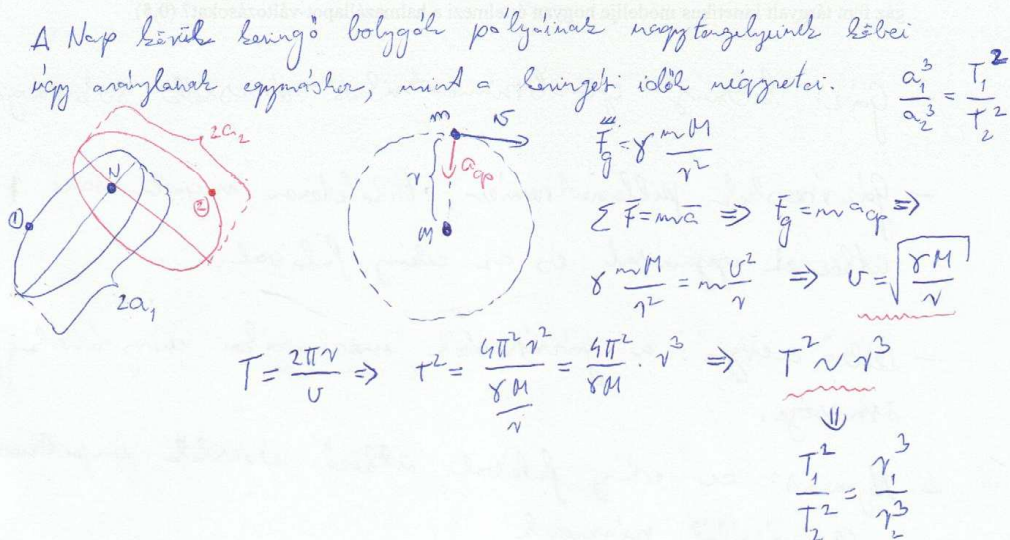 A Nap körül keringő bolygók pályáinak nagytengelyeinek köbei
úgy aránylanak egymáshoz, mint a keringési idők négyzetei.
a₁³/a₂³ = T₁²/T₂²
2a₂
N
①
②
2a₁
m
v
r
a_cp
M
F_g = γ mM/r²
Σ F̄ = mā ⇒ F_g = m a_cp ⇒
γ mM/r² = m v²/r ⇒ v = √(γM/r)
T = 2πr/v ⇒ T² = 4π²r²/(γM/r) = 4π²/γM · r³ ⇒ T² ~ r³
⇓
T₁²/T₂² = r₁³/r₂³